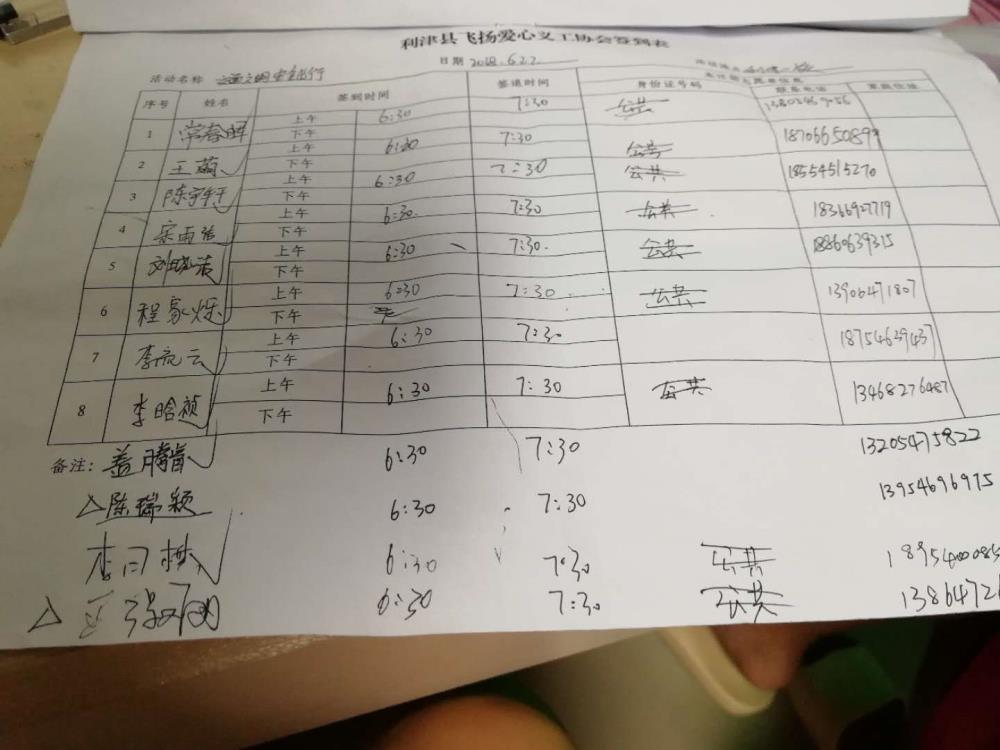 利津县飞扬爱心义工协会签到表
日期 2018.6.22
活动名称 文明安全行
序号 姓名 签到时间 签退时间 身份证号码 联系电话 家庭住址
上午 6:30 7:30 公共
1 常春晖 下午 18706650899
上午 6:30 7:30 公共
2 王 下午 18554515270
上午 6:30 7:30 公共
3 陈宇轩 下午
上午 6:30 7:30 公共 18366927719
4 宋雨 下午
上午 6:30 7:30 公共 18860639315
5 刘晓洁 下午
上午 6:30 7:30 公共 13906471807
6 程家烁 下午
上午 6:30 7:30 18754639437
7 李 云 下午
上午 6:30 7:30 公共 13468276487
8 李晗祯 下午
备注: 盖腾 6:30 7:30 13205475822
△陈瑞颖 6:30 7:30 13954696975
李 6:30 7:30 公共
△ 6:30 7:30 公共 1386472